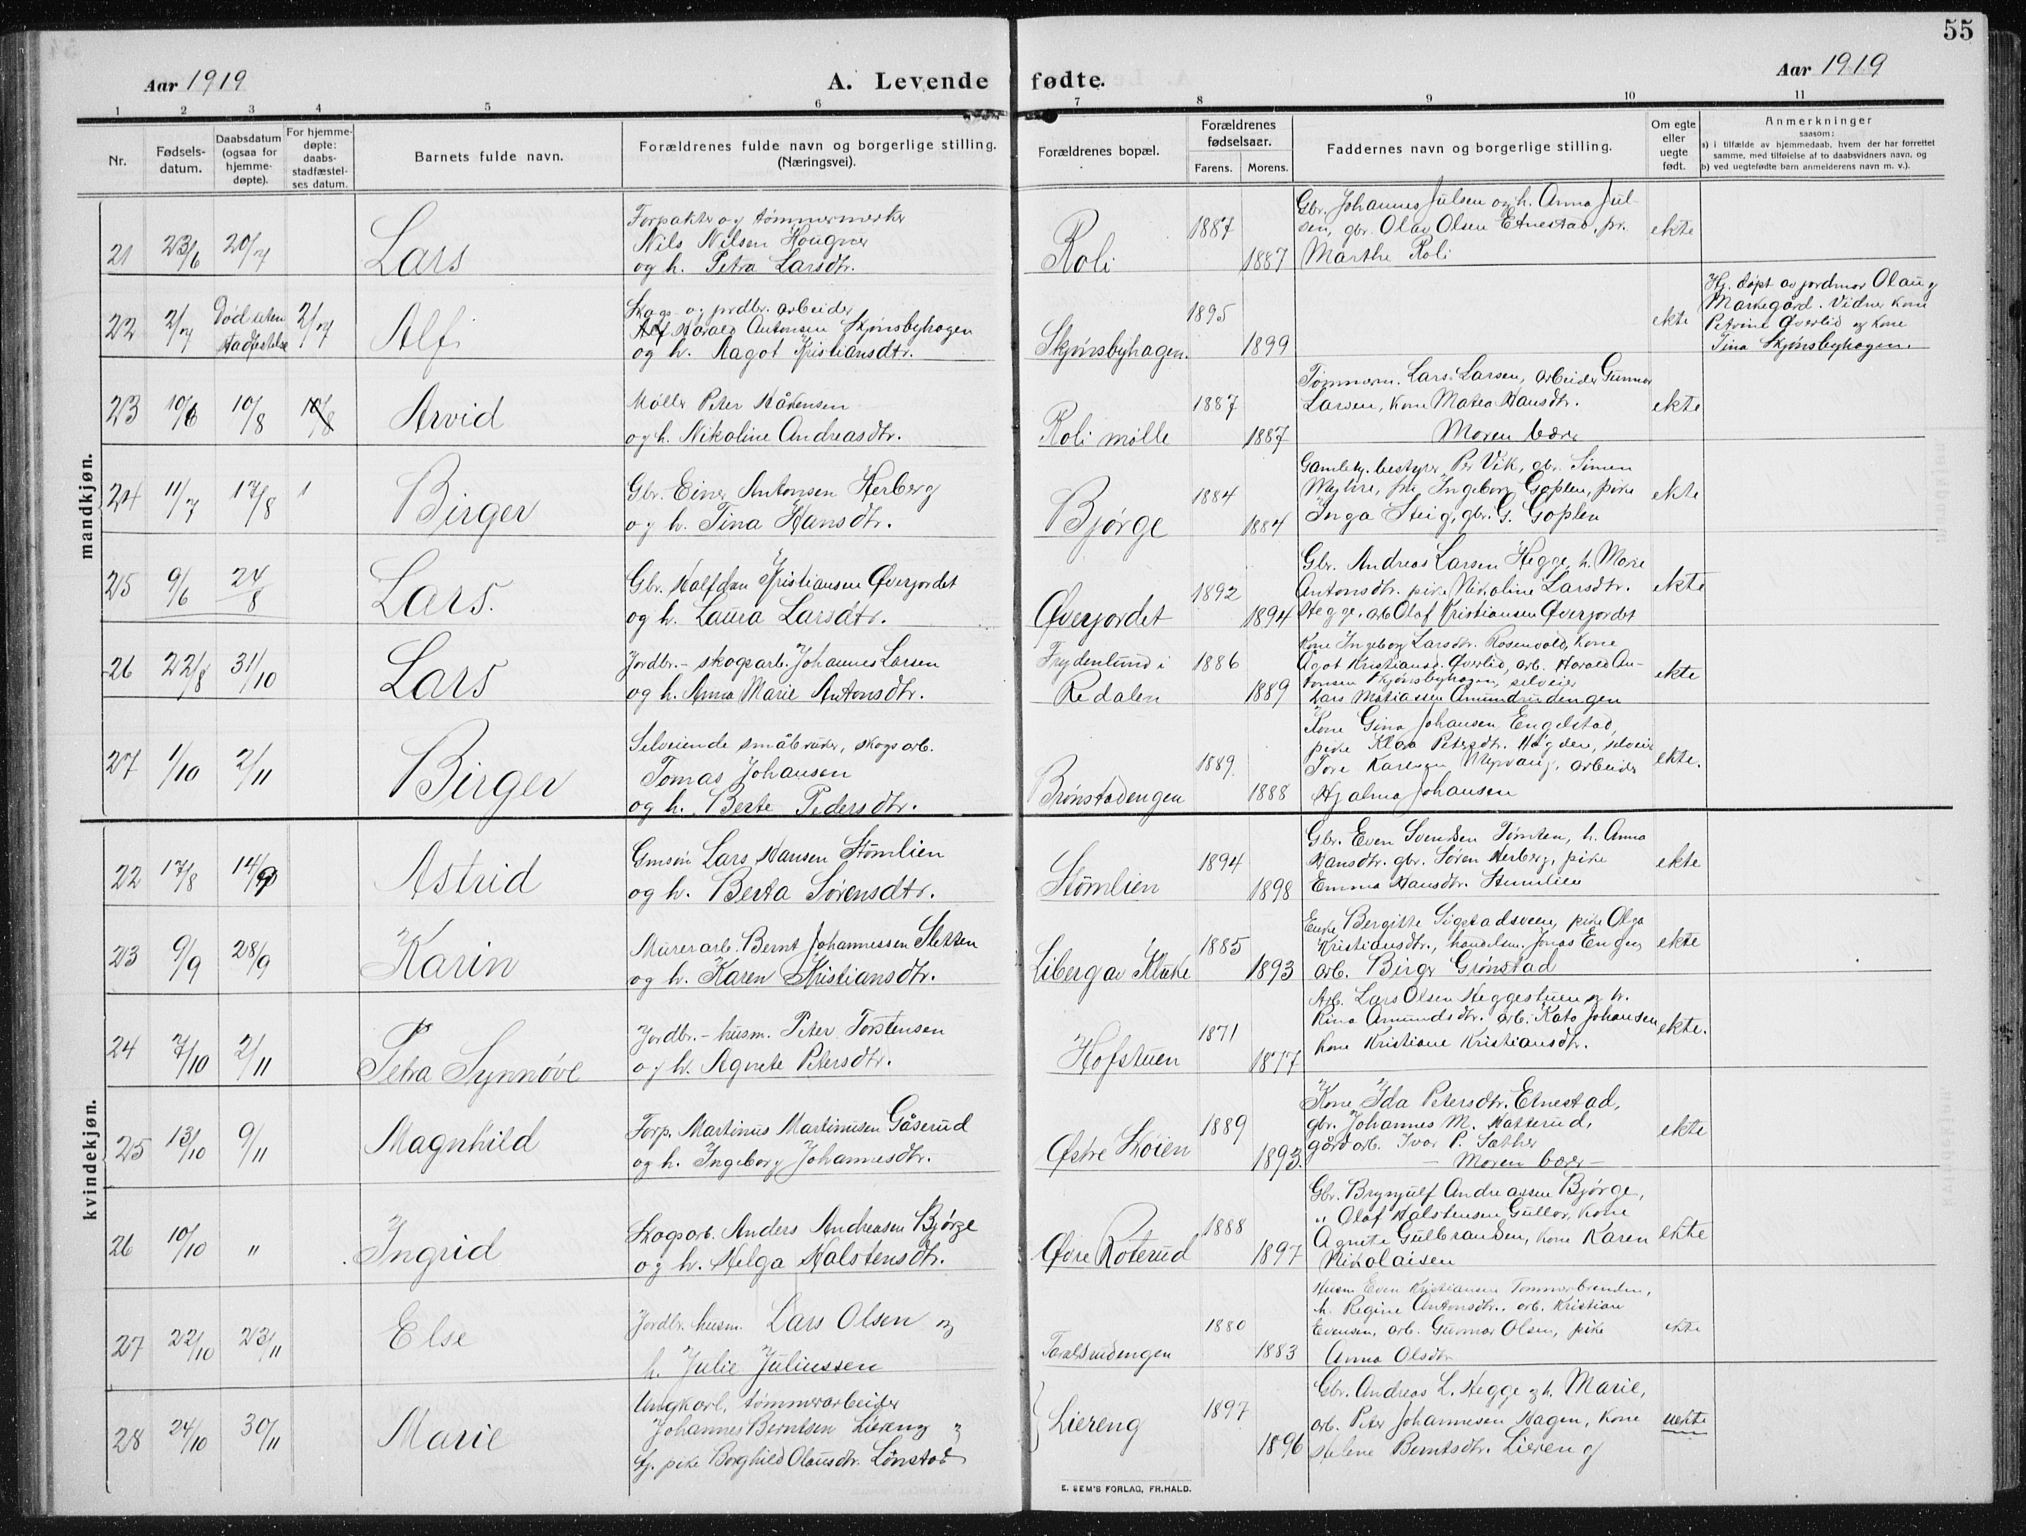 55
Aar 1919
A. Levende fødte.
Aar 1919
1 2 3 4 5 6 7 8 9 10 11
Nr.
Fødsels-
datum.
Daabsdatum
(ogsaa for
hjemme-
døpte).
For hjemme-
døpte:
daabs-
stadfæstel-
ses datum.
Barnets fulde navn.
Forældrenes fulde navn og borgerlige stilling.
(Næringsvei).
Forældrenes bopæl.
Forældrenes
fødselsaar.
Farens. Morens.
Faddernes navn og borgerlige stilling.
Om egte
eller
uegte
født.
Anmerkninger
saasom:
a) i tilfælde av hjemmedaab, hvem der har forrettet
samme, med tilføielse af to daabsvidners navn, og
b) ved uegtefødte barn anmelderens navn m. v.).
mandkjøn.
21 23/6 20/7 Lars
Forpakter og tømmermerker
Nils Nilsen Hougner
og h. Petra Larsdtr.
Roli 1887 1887
Gbr. Johannes Julsen og h. Anna Jul-
sen, gbr. Olav Olsen Etnestad, pr.
Marthe Roli
ekte
22 2/7 Død uten
stadfæstelse 2/7 Alf
Skogs- og jordbr. arbeider
Alf Harald Antonsen Skjønsbyhagen
og h. Aagot Kristiansdtr.
Skjønsbyhagen. 1895 1899
ekte
Hj. døpt av jordmor Olaug
Markegård. Vidner kone
Petrine Øverlid og kone
Tina Skjønsbyhagen.
23 10/6 10/8 10/8 Arvid
Møller Peter Håkensen
og h. Nikoline Andreasdtr.
Roli mølle 1887 1887
Tømmerm. Lars Larsen, arbeider Gunnar
Larsen, kone Matea Hansdtr.
Moren bærer
ekte
24 11/7 17/8 1 Birger
Gbr. Einer Antonsen Herberg
og h. Tina Hansdtr.
Bjørge 1884 1884
Gamleh. bestyrer Per Vik, gbr. Simen
frk. Ingeborg Goplen, pike
Inga Steig, gbr. G. Goplen
ekte
25 9/6 24/8 Lars.
Gbr. Halfdan Kristiansen Øverjordet
og h. Laura Larsdtr.
Øverjordet 1892 1894
Gbr. Andreas Larsen Hegge, h. Marie
Antonsdtr. pike Nikoline Larsdtr.
Hegge, arb. Olaf Kristiansen Øverjordet
ekte
26 22/8 31/10 Lars
Jordbr.- skogsarb. Johannes Larsen
og h. Anna Marie Antonsdtr.
Frydenlund i
Redalen 1886 1889
Kone Ingeborg Larsdtr. Rosenvold, kone
Agot Kristiansd. Øverlid, arb. Harald An-
tonsen Skjønsbyhagen, selveier
Lars Matiassen Amundrudengen
ekte
27 1/10 2/11 Birger
Selveiende småbruker, skogsarb.
Tomas Johansen
og h. Berte Pedersdtr.
Brønstadengen 1889. 1888
Kone Gina Johansen Engelstad,
pike Klara Petersdtr. Hågden, selveier
Tore Karensen Myrvang, arbeider
Hjalmar Johansen
ekte.
kvindekjøn.
22 17/8 14/9 Astrid
Gmsøn Lars Hansen Stømlien
og h. Berta Sørensdtr.
Stømlien 1894 1898
Gbr. Even Svendsen Tømten, h. Anna
Hansdtr. gbr. Søren Herberg, pike
Emma Hansdtr. Stumlien
ekte
23 9/9 28/9 Karin
Murerarb. Bernt Johannessen Sletten
og h. Karen Kristiansdtr.
Liberg av Kluke 1885 1893
Enke Bergitte Sigstadsveen, pike Olga
Kristiansdtr., handelsm. Jonas Enger,
arb. Birger Grønstad
ekte
24 7/10 2/11 Petra Synnøve
Jordbr.- husm. Peter Torstensen
og h. Agnete Petersdtr.
Hofstuen 1871 1877
Arb. Lars Olsen Heggestuen og h.
Rina Amundsdtr. arb. Kato Johansen
kone Kristiane Kristiansdtr.
ekte.
25 13/10 9/11 Magnhild
Forp. Martinus Martinusen Gåserud
og h. Ingeborg Johannesdtr.
Østre Loien 1889 1893.
Kone Ida Petersdtr. Etnestad,
gbr. Johannes M. Hatterud,
gårdarb. Ivar P. Sæther
- Moren bær -
ekte
26 10/10 " Ingrid
Skogsarb. Anders Andreasen Bjørge
og h. Helga Halstensdtr.
Øvre Roterud 1888 1897
Gbr. Brynjulf Andreassen Bjørge,
" Olaf Halstensen Gullor, kone
Agnete Gulbransen, kone Karen
Nikolaisen
ekte
27 22/10 23/11 Else
Jordbr. husm. Lars Olsen og
h. Julie Juliussen
Toralsrudengen 1880 1883
Husm. Even Kristiansen Tommerbrenden,
h. Regine Antonsdtr., arb. Kristian
Evensen, arb. Gunnar Olsen, pike
Anna Olsdtr
ekte
28 24/10 30/11 Marie
Ungkarl, tømmerarbeider
Johannes Berntsen Liereng og
pike Borghild Olausdtr. Lønstad
Liereng 1897 1896
Gbr. Andreas L. Hegge og h. Marie,
arb. Peter Johannesen Hagen, kone
Helene Berntsdtr. Liereng
uekte
E. SEM'S FORLAG, FR.HALD.